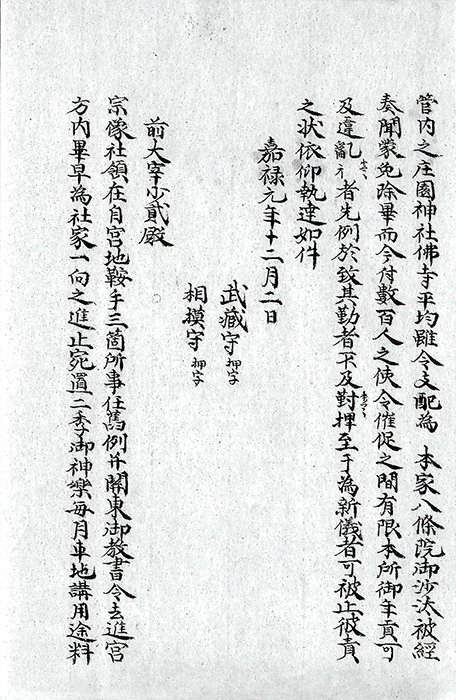 管内之庄園神社佛寺平均雖令支配為 本家八條院御沙汰被経
奏聞蒙免除畢而今付數百人之使令催促之間有限本所御年貢可
及違乱云々者先例於致其勤者不及對押至于為新儀者可被止彼責
之状依仰執達如件
嘉禄元年十二月二日
武蔵守 押字
相摸守 押字
前大宰少貳殿
宗像社領在自宮地鞍手三箇所事任舊例并關東御教書令去進宮
方内畢早為社家一向之進止宛置二季御神樂毎月車地講用途料